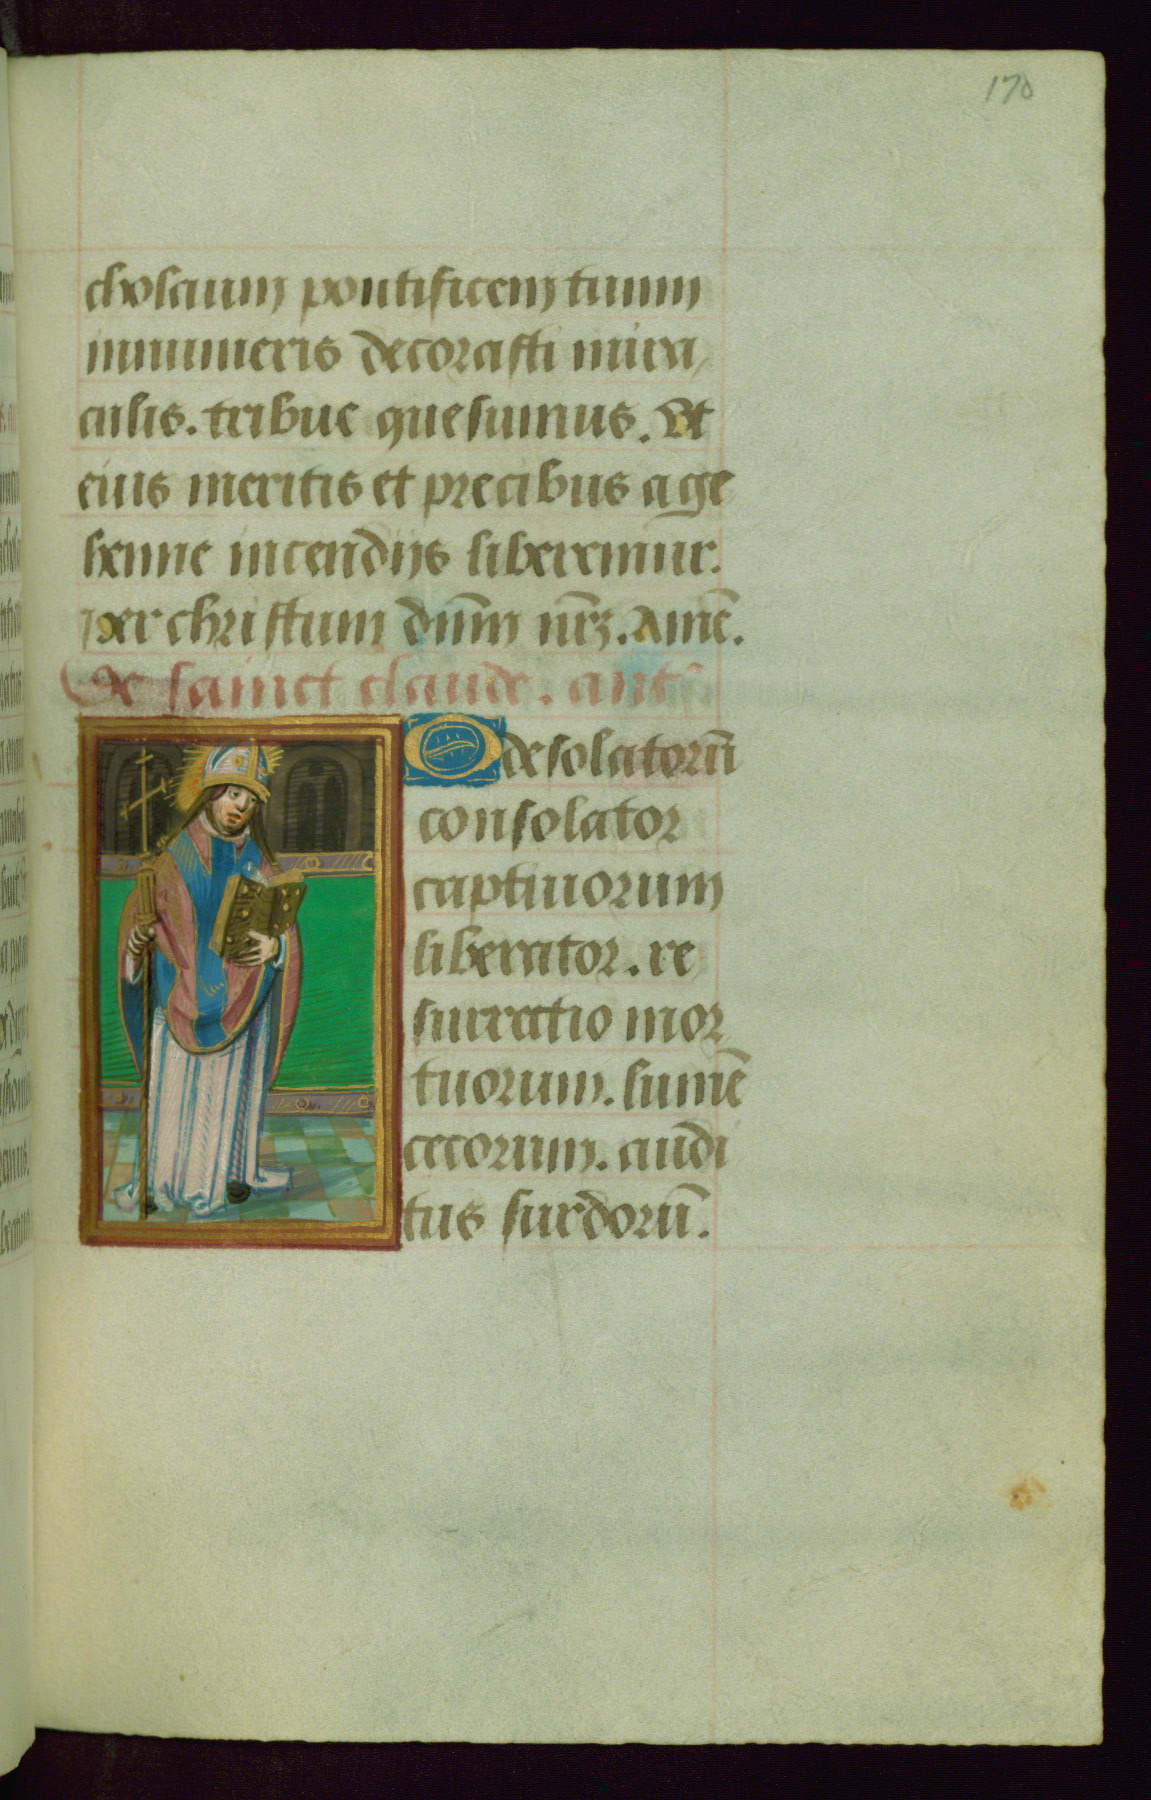 170
cholaum pontificem tuum
innumeris decorasti mira
culis. tribue quesumus. Ut
eius meritis et precibus a ge
henne incendijs liberemur.
Per christum dnm̄ nrz̄. Amē.
De sainct claude. antī.
O desolatorū
consolator
captiuorum
liberator. re
surrectio mor
tuorum. lumē
cecorum. audi
tus surdorū.